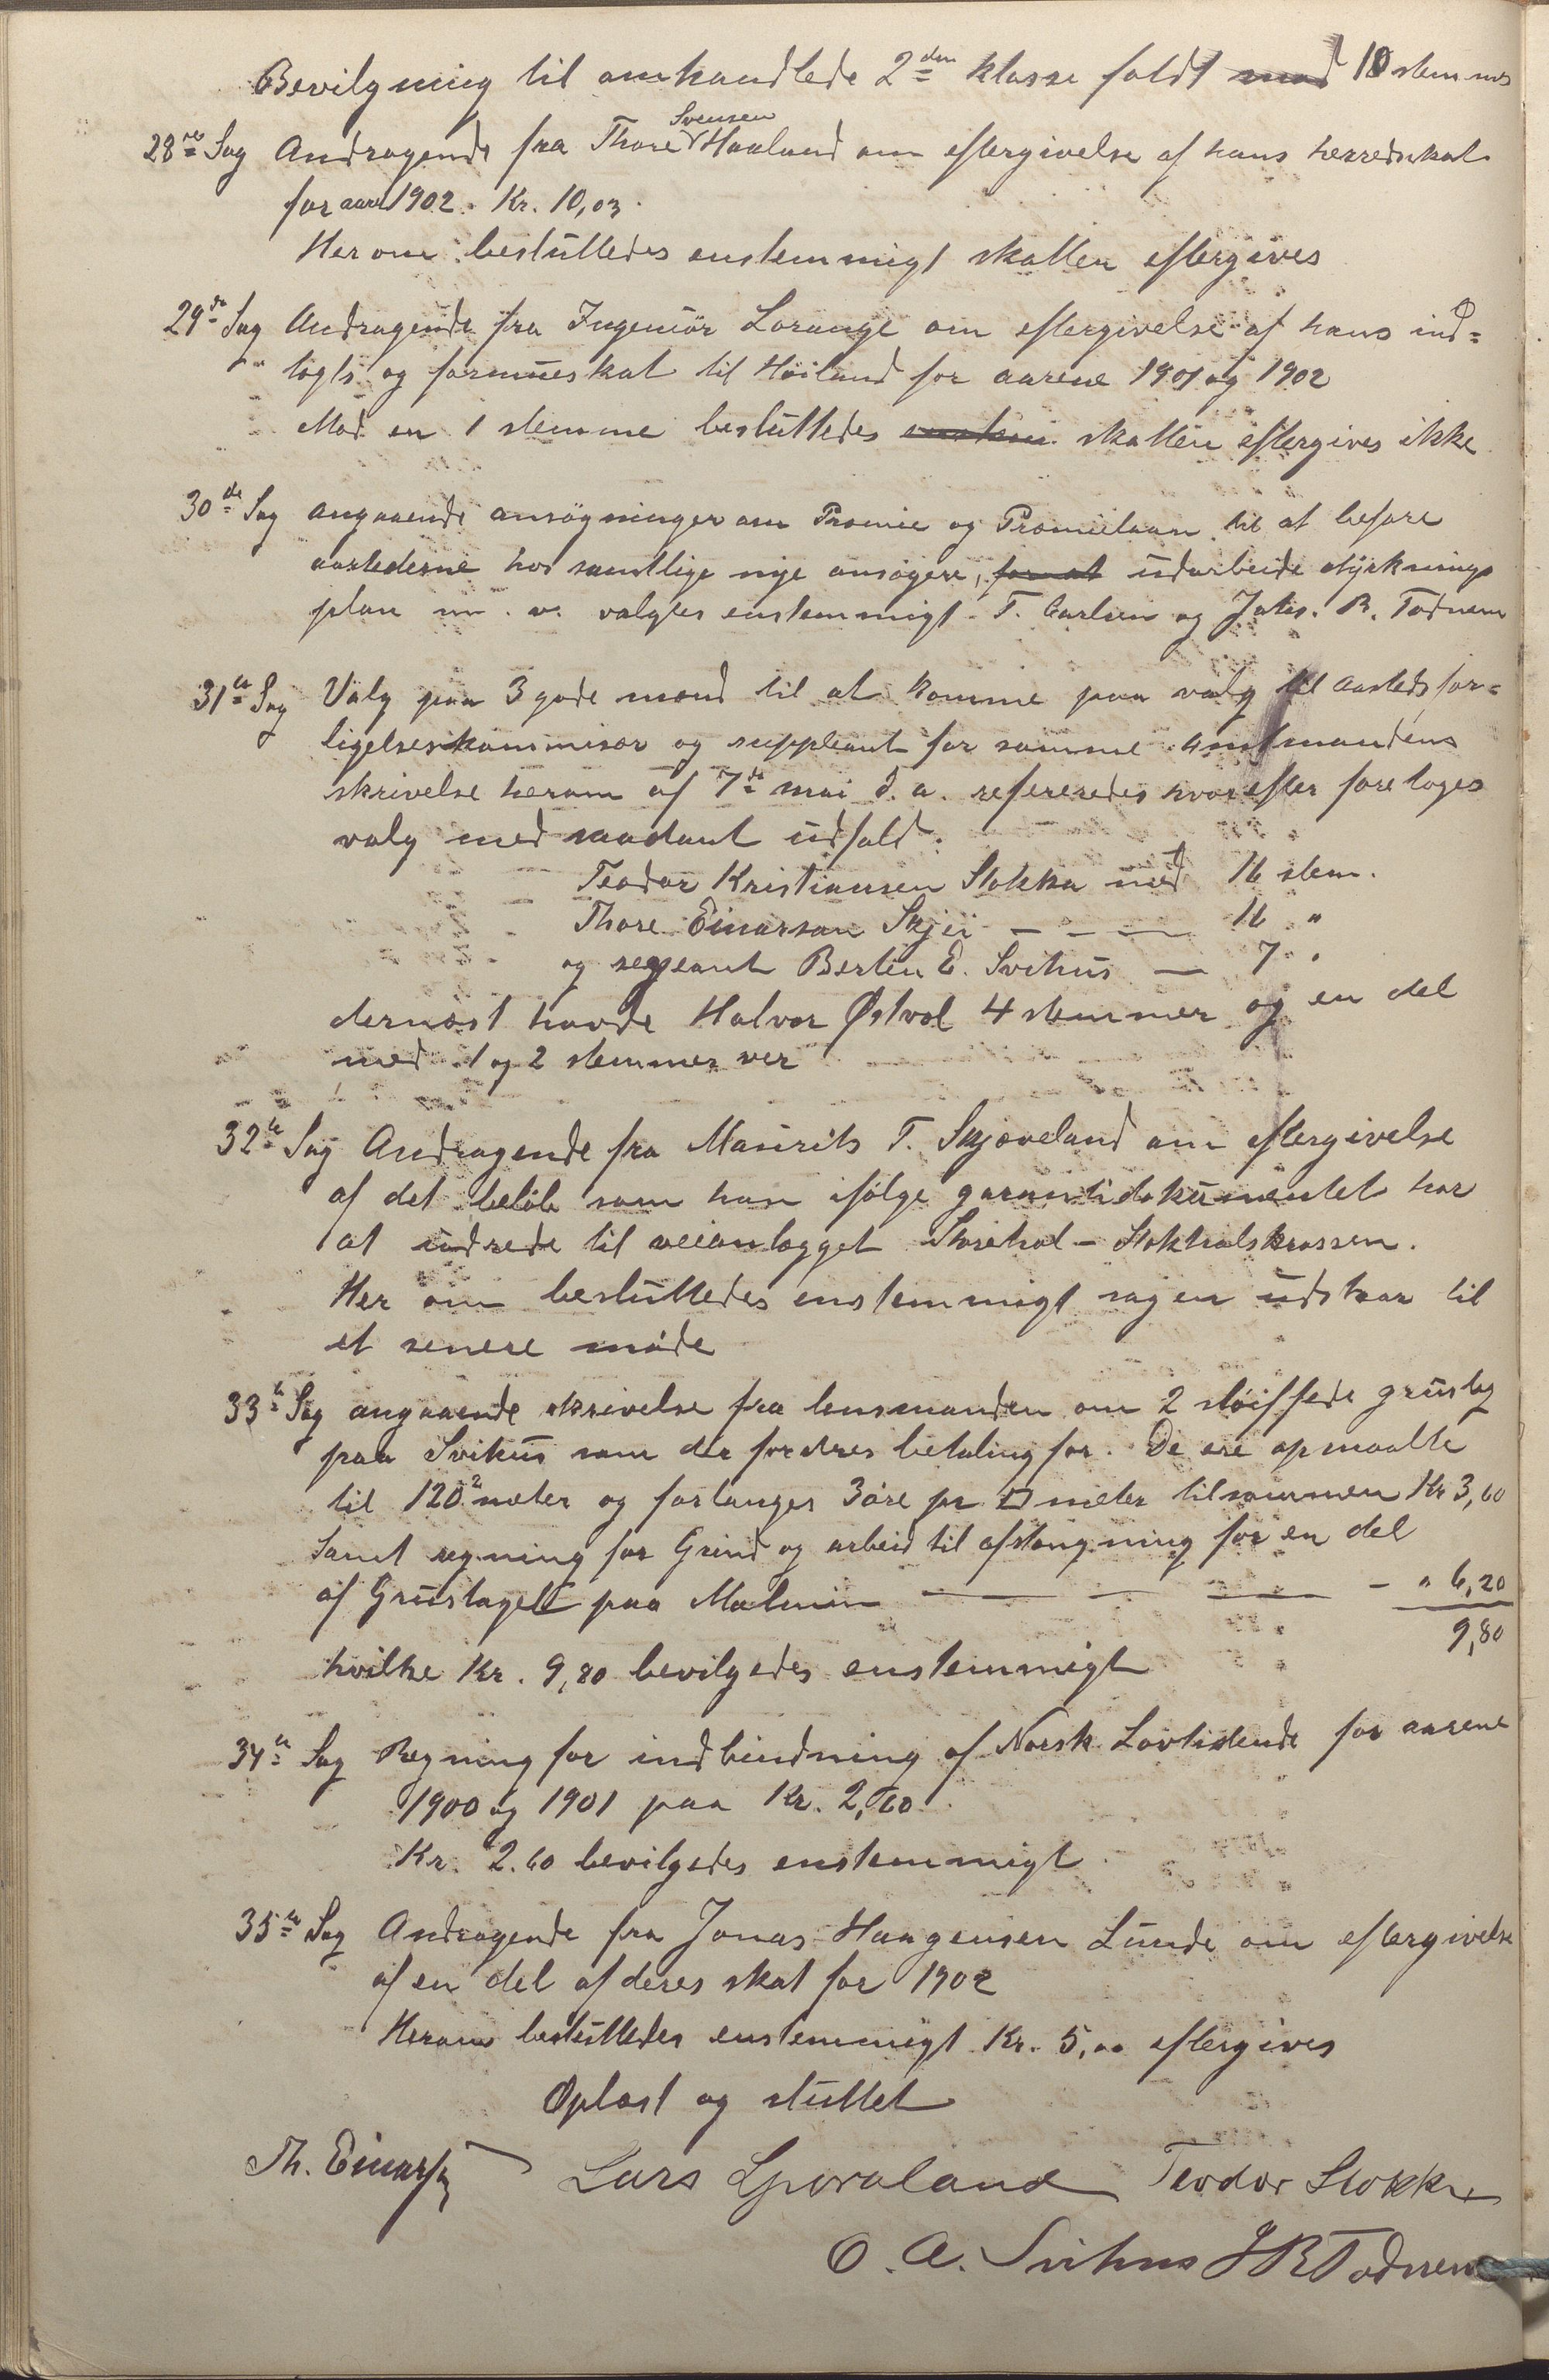 Bevilgning til omhandlede 2den klasse faldt med 10 stemmer
28de Sag Andragende fra Thore Svensen Haaland om eftergivelse af hans herredskat
for aaret 1902. Kr. 10,03.
Her om besluttedes enstemmigt skatten eftergives
29de Sag Andragende fra Ingeniør Lorange om eftergivelse af hans ind=
tægts og formueskat til Høiland for aarene 1901 og 1902
Mod en 1 stemme besluttedes enstem skatten eftergives ikke
30de Sag angaaende ansøgninger om Præmie og Præmielaan til at befare
aastederne hos samtlige nye ansøgere, for at udarbeide dyrknings
plan m. v. valgtes enstemmigt T. Carlsen og Johs. R. Todnem
31te Sag Valg paa 3 gode mænd til at komme paa valg til aastedsfor=
ligelseskommisær og suppleant for samme amtmandens
skrivelse herom af 7de mai d. a. refereredes hvorefter foretoges
valg med saadant udfald:
Teodor Kristiansen Stokka med 16 stem.
Thore Einarsen Skjei — — — 16 "
og sergeant Bertin E. Svihus — 7 "
dernæst havde Halvor Østvol 4 stemmer og en del
med 1 og 2 stemmer ver
32te Sag Andragende fra Maurits T. Skjæveland om eftergivelse
af det beløb som han ifølge garantidokumentet har
at udrede til veianlægget Storehol - Stokholskrossen.
Her om besluttedes enstemmigt sagen udstaar til
et senere møde
33te Sag angaaende skrivelse fra lensmanden om 2 sløiffede grustag
paa Svihus som der fordres betaling for. De ere opmaalte
til 120 2meter og forlanges 3 øre pr □ meter tilsammen Kr 3,60
Samt regning for Grind og arbeid til afstængning for en del
af Grustaget paa Malmin — — — - " 6,20
9,80
hvilke Kr. 9,80 bevilgedes enstemmigt
34te Sag Regning for indbindning af Norsk Lovtidende for aarene
1900 og 1901 paa Kr. 2,60.
Kr. 2.60 bevilgedes enstemmigt.
35te Sag Andragende fra Jonas Haagensen Lunde om eftergivelse
af en del af deres skat for 1902
Herom besluttedes enstemmigt Kr. 5,00 eftergives
Oplæst og sluttet
Th. Einarsen Lars Skjævaland Teodor Stokka
O. A. Svihus J R Todnem